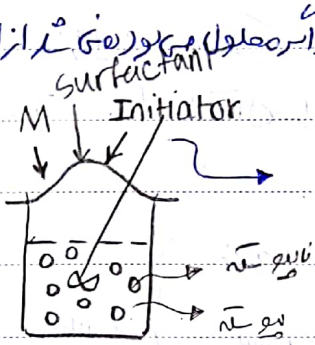 اگر محلول می‌بود نمی شد از
surfactant
M Initiator
ناپیوسته
پیوسته